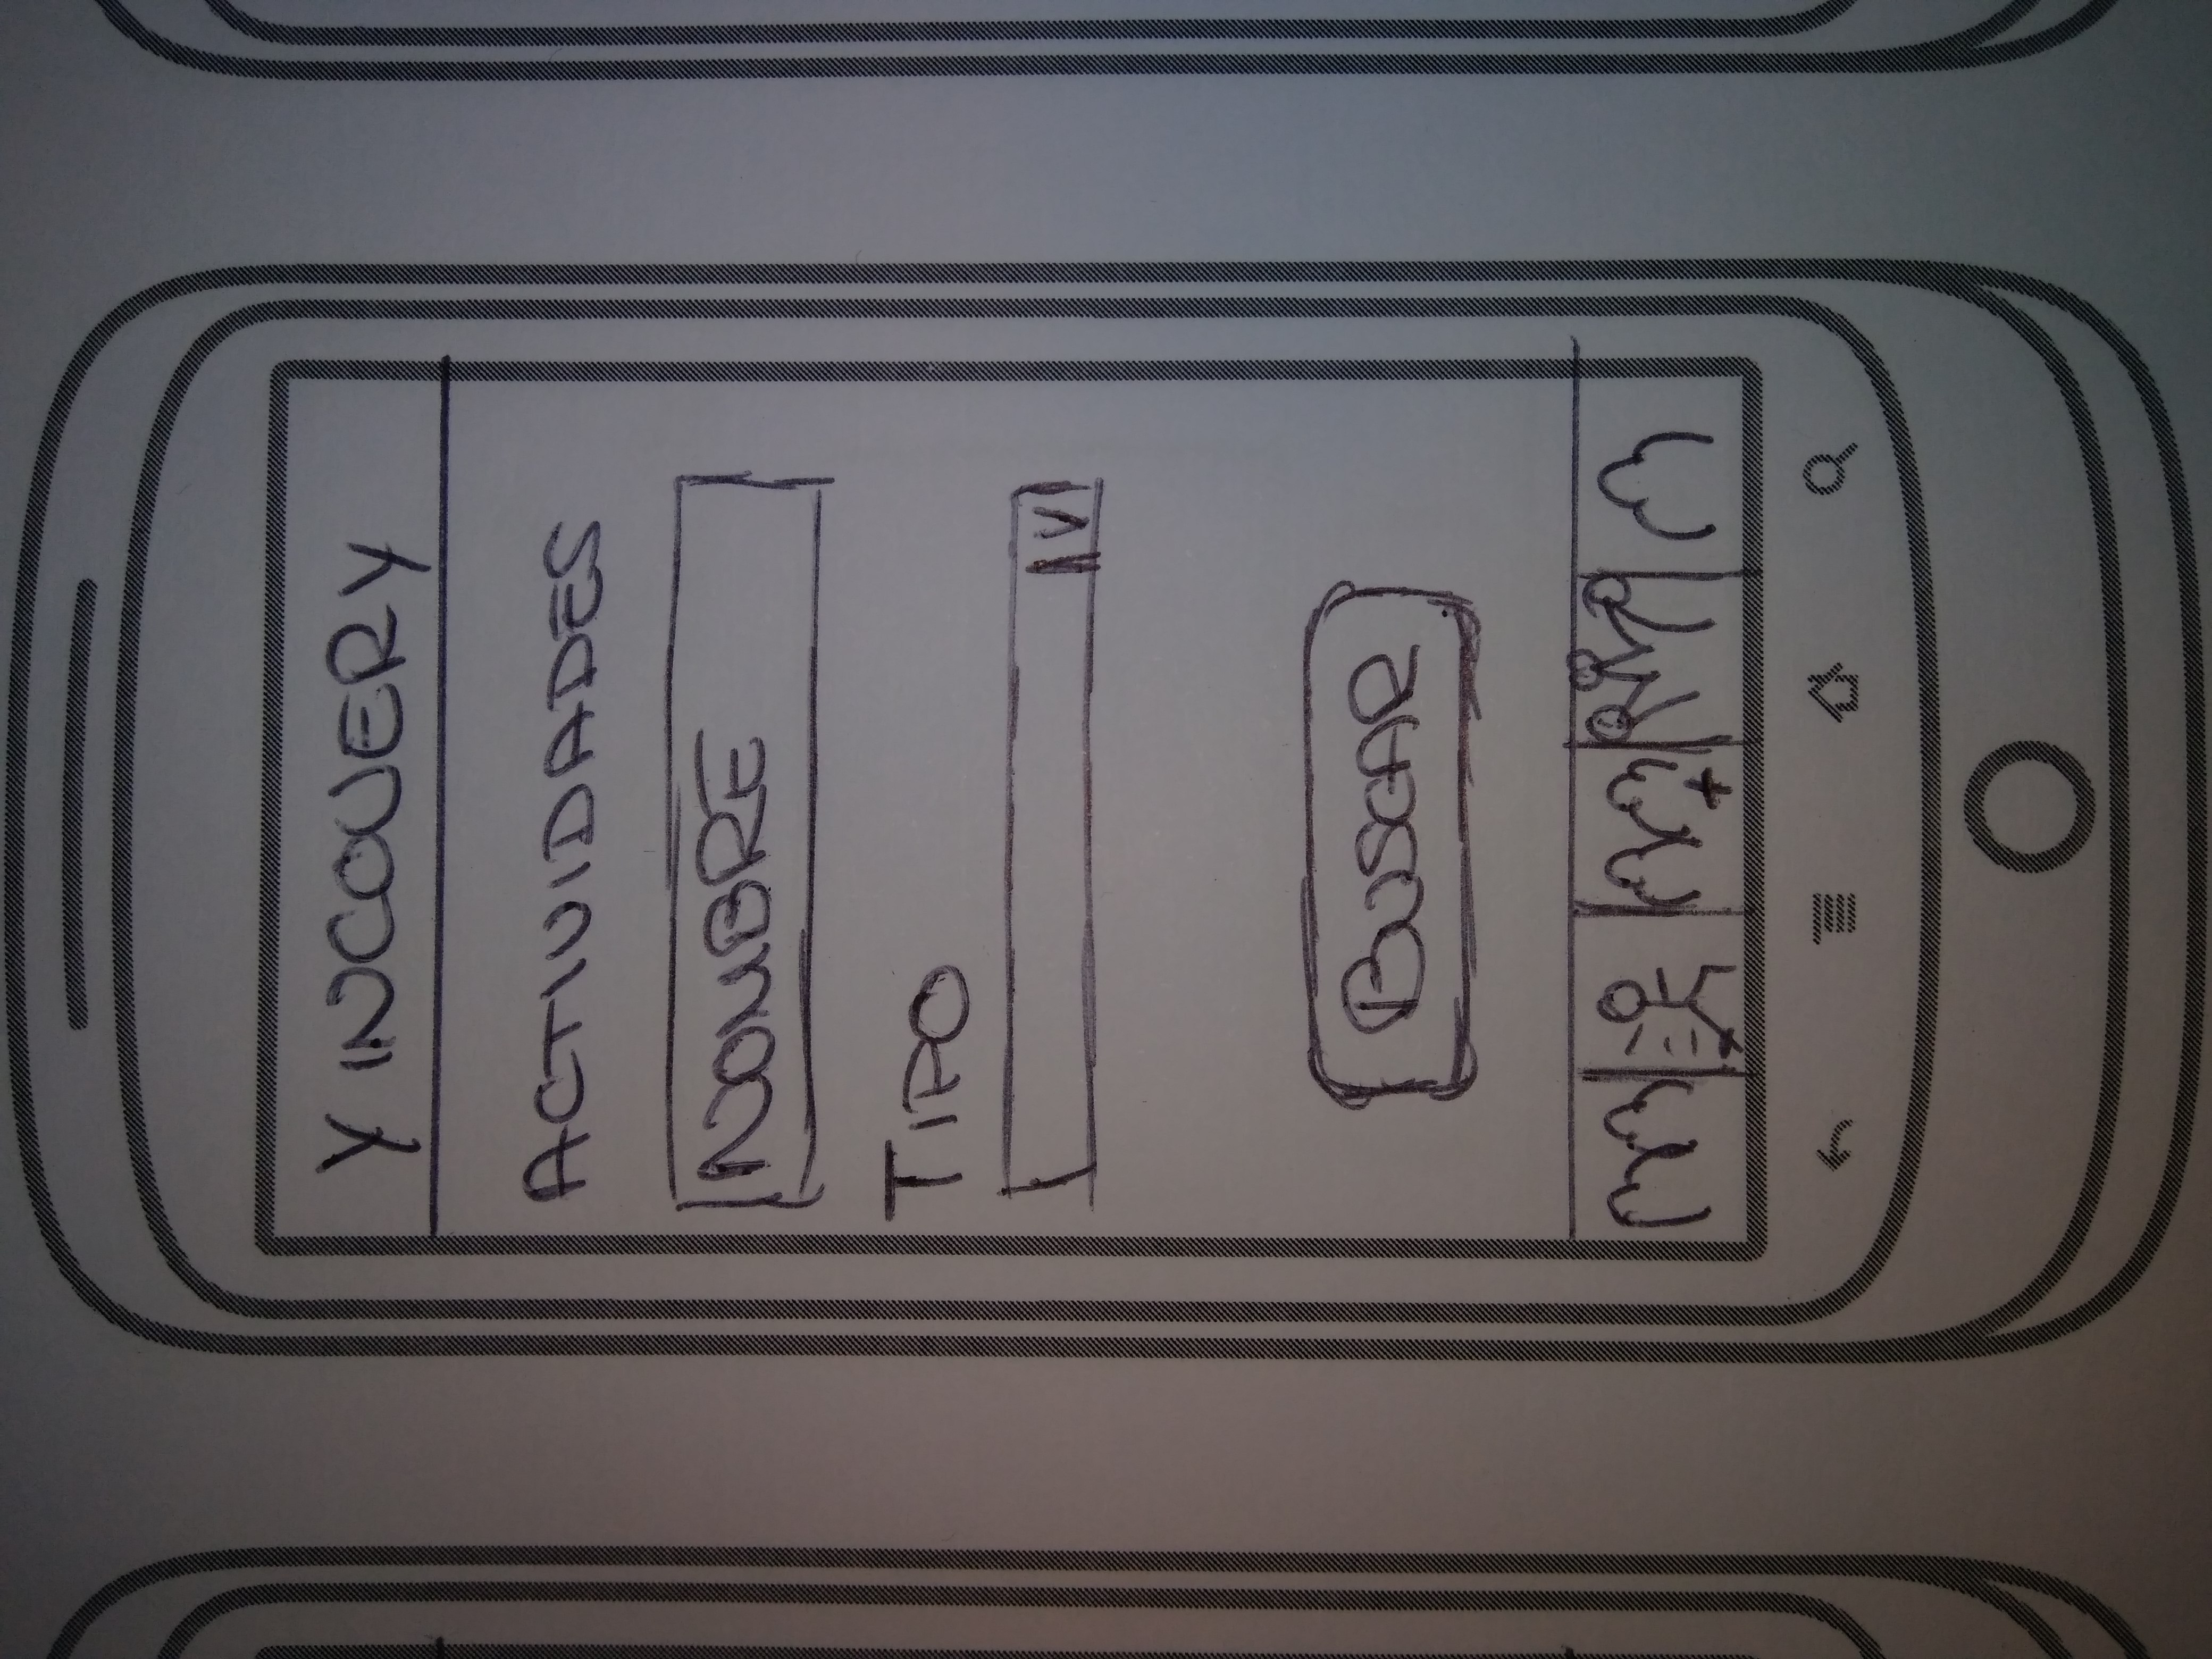 YINCOVERY
ACTIVIDADES
NOMBRE
TIPO
BUSCAR